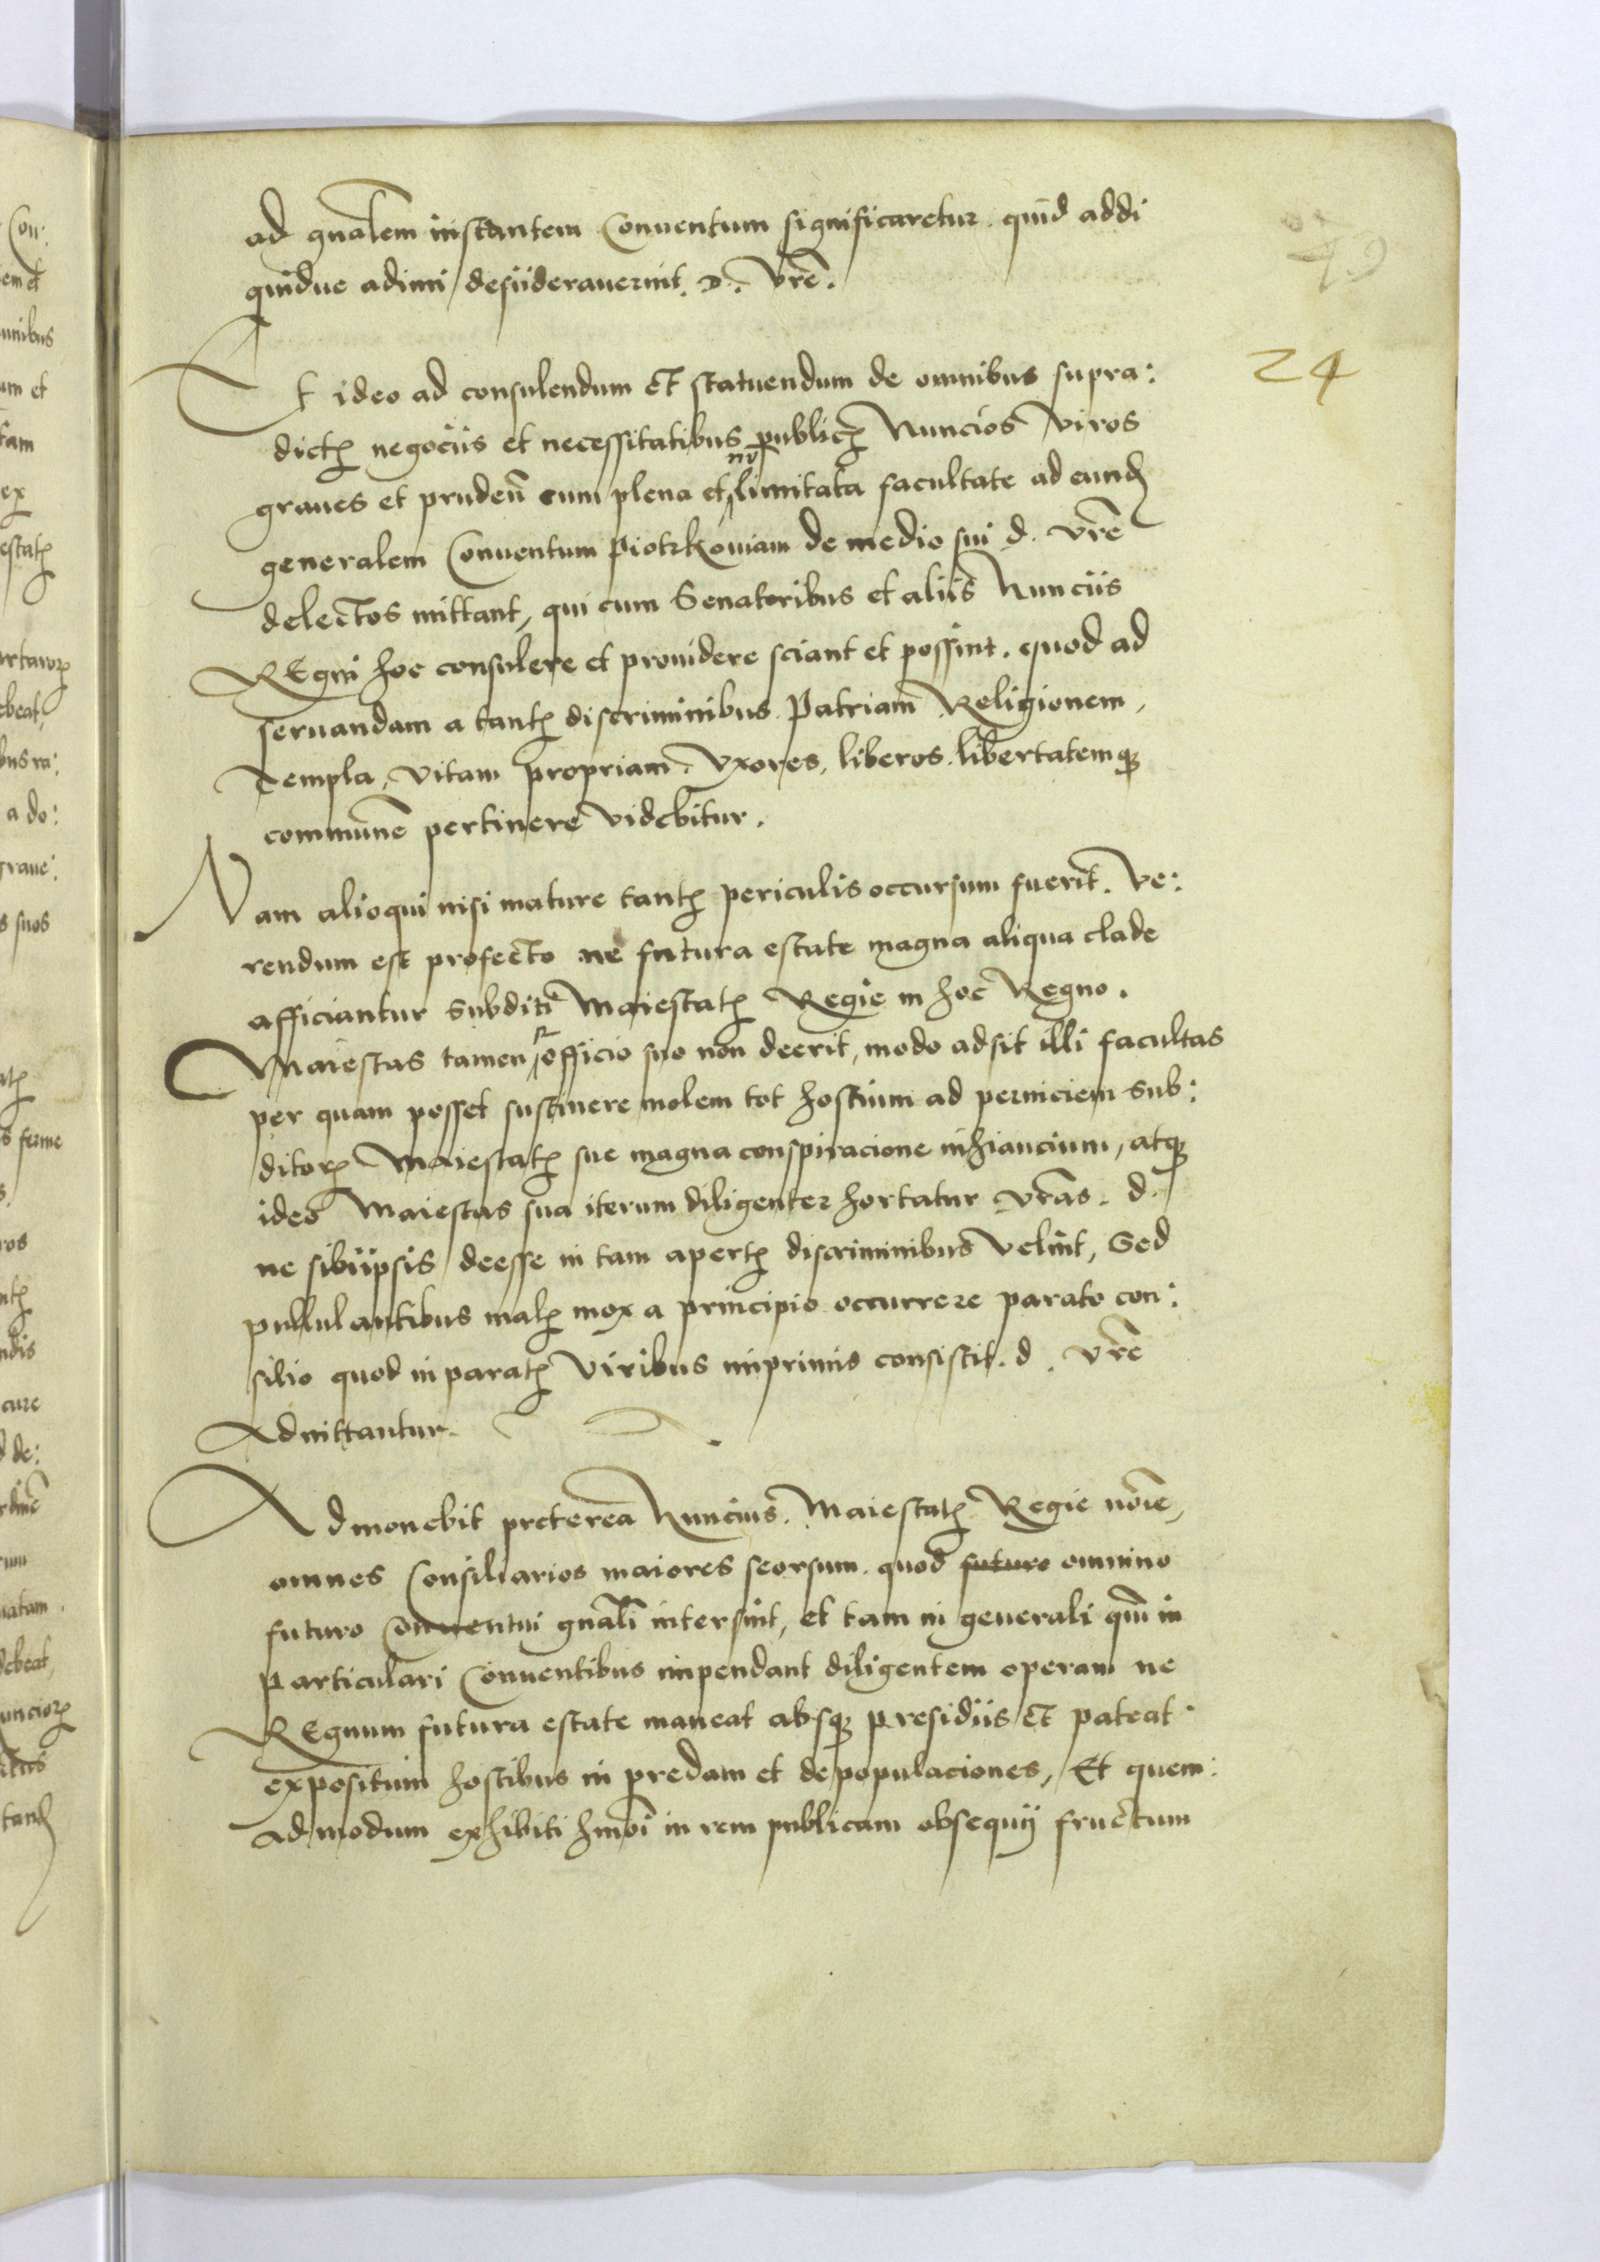 ad gnalem instantem Conuentum significaretur. quid addi
quidue adimi desiiderauerint. D. Vrē.
24
Et ideo ad consulendum et statuendum de omnibus supra:
dictꝭ negociis et necessitatibus publicꝭ Nuncios Viros
graues et pruden̄ cum plena et limitata facultate ad eundꝭ
generalem Conuentum Piotrkouiam de medio sui d. vrē
delectos mittant, qui cum Senatoribus et aliis Nunciis
REgni hoc consulere et prouidere sciant et possint. quod ad
seruandam a tantꝭ discriminibus Patriam Religionem,
Templa, vitam propriam, Vxores, liberos, libertatemqꝫ
communē pertinere videbitur.
Nam alioqui nisi mature tantꝭ periculis occursum fuerit. Ve:
rendum est profecto ne futura estate magna aliqua clade
afficiantur subditi Maiestatꝭ Regie in hoc Regno.
Maiestas tamen officio suo non deerit, modo adsit illi facultas
per quam posset sustinere molem tot hostium ad perniciem sub:
ditorꝭ Maiestatꝭ sue magna conspiracione inhiancium, atqꝫ
ideo Maiestas sua iterum diligenter hortatur vrās. d.
ne sibiipsis deesse in tam apertꝭ discriminibus velint, Sed
pullulantibus malꝭ mox a principio occurrere parato con:
silio quod in paratꝭ viribus inprimis consistit. d. vrē
Admittantur.
Admonebit preterea Nuncius Maiestatꝭ Regie noīe,
omnes Consiliarios maiores seorsum. quod futuro omnino
futuro Conuentui gnali intersint, et tam in generali qm̄ in
particulari Conuentibus impendant diligentem operam ne
REgnum futura estate maneat absqꝫ presidiis et pateat
expositum hostibus in predam et depopulaciones, Et quem:
admodum exhibiti hmōi in rem publicam obsequij fructum